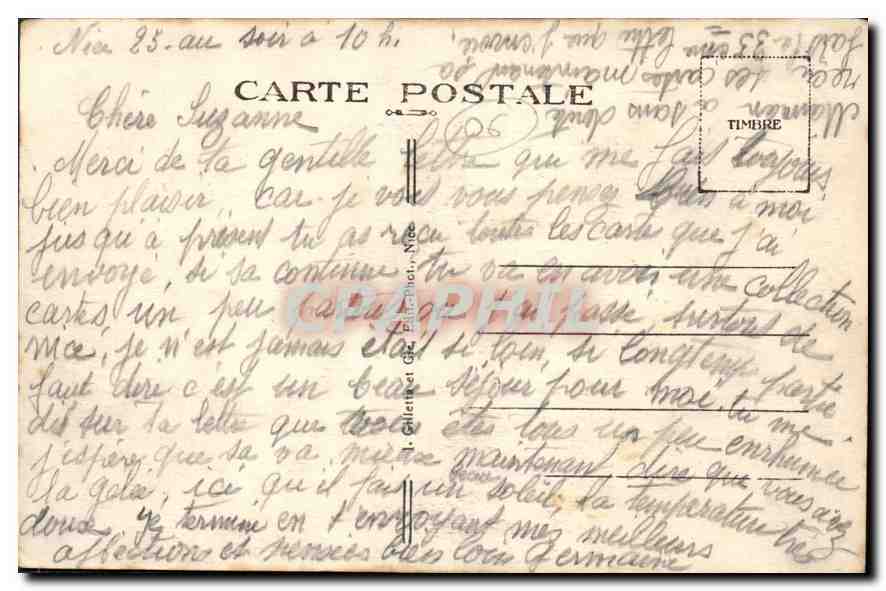 Nice 25. au soir à 10 h.
Maman a sans doute
reçu les cartes maintenant ça
fait la 33 ème lettre que j'envoie.
CARTE POSTALE
TIMBRE
06
Chère Suzanne
Merci de ta gentille lettre qui me fait toujours
bien plaisir, car je vous vous pensez bien à moi
jusqu'à présent tu as reçu toutes les cartes que j'ai
envoyé, si sa continue tu va en avoir une collection
cartes un peu partout où tu passe surtout de
Nice, je n'est jamais était si loin, si longtemp partie
faut dire c'est un beau séjour pour moi, tu me
dis sur ta lettre que vous êtes tous un peu enrhumée
j'espère que sa va mieux maintenant dire que vous avez
la gelé, ici qu'il fait un beau soleil, la température très
doux, je termine en t'envoyant mes meilleurs
affections et pensées bien loin Germaine
J. Gilletta et Cie, Edit.-Phot., Nice
CPAPHIL